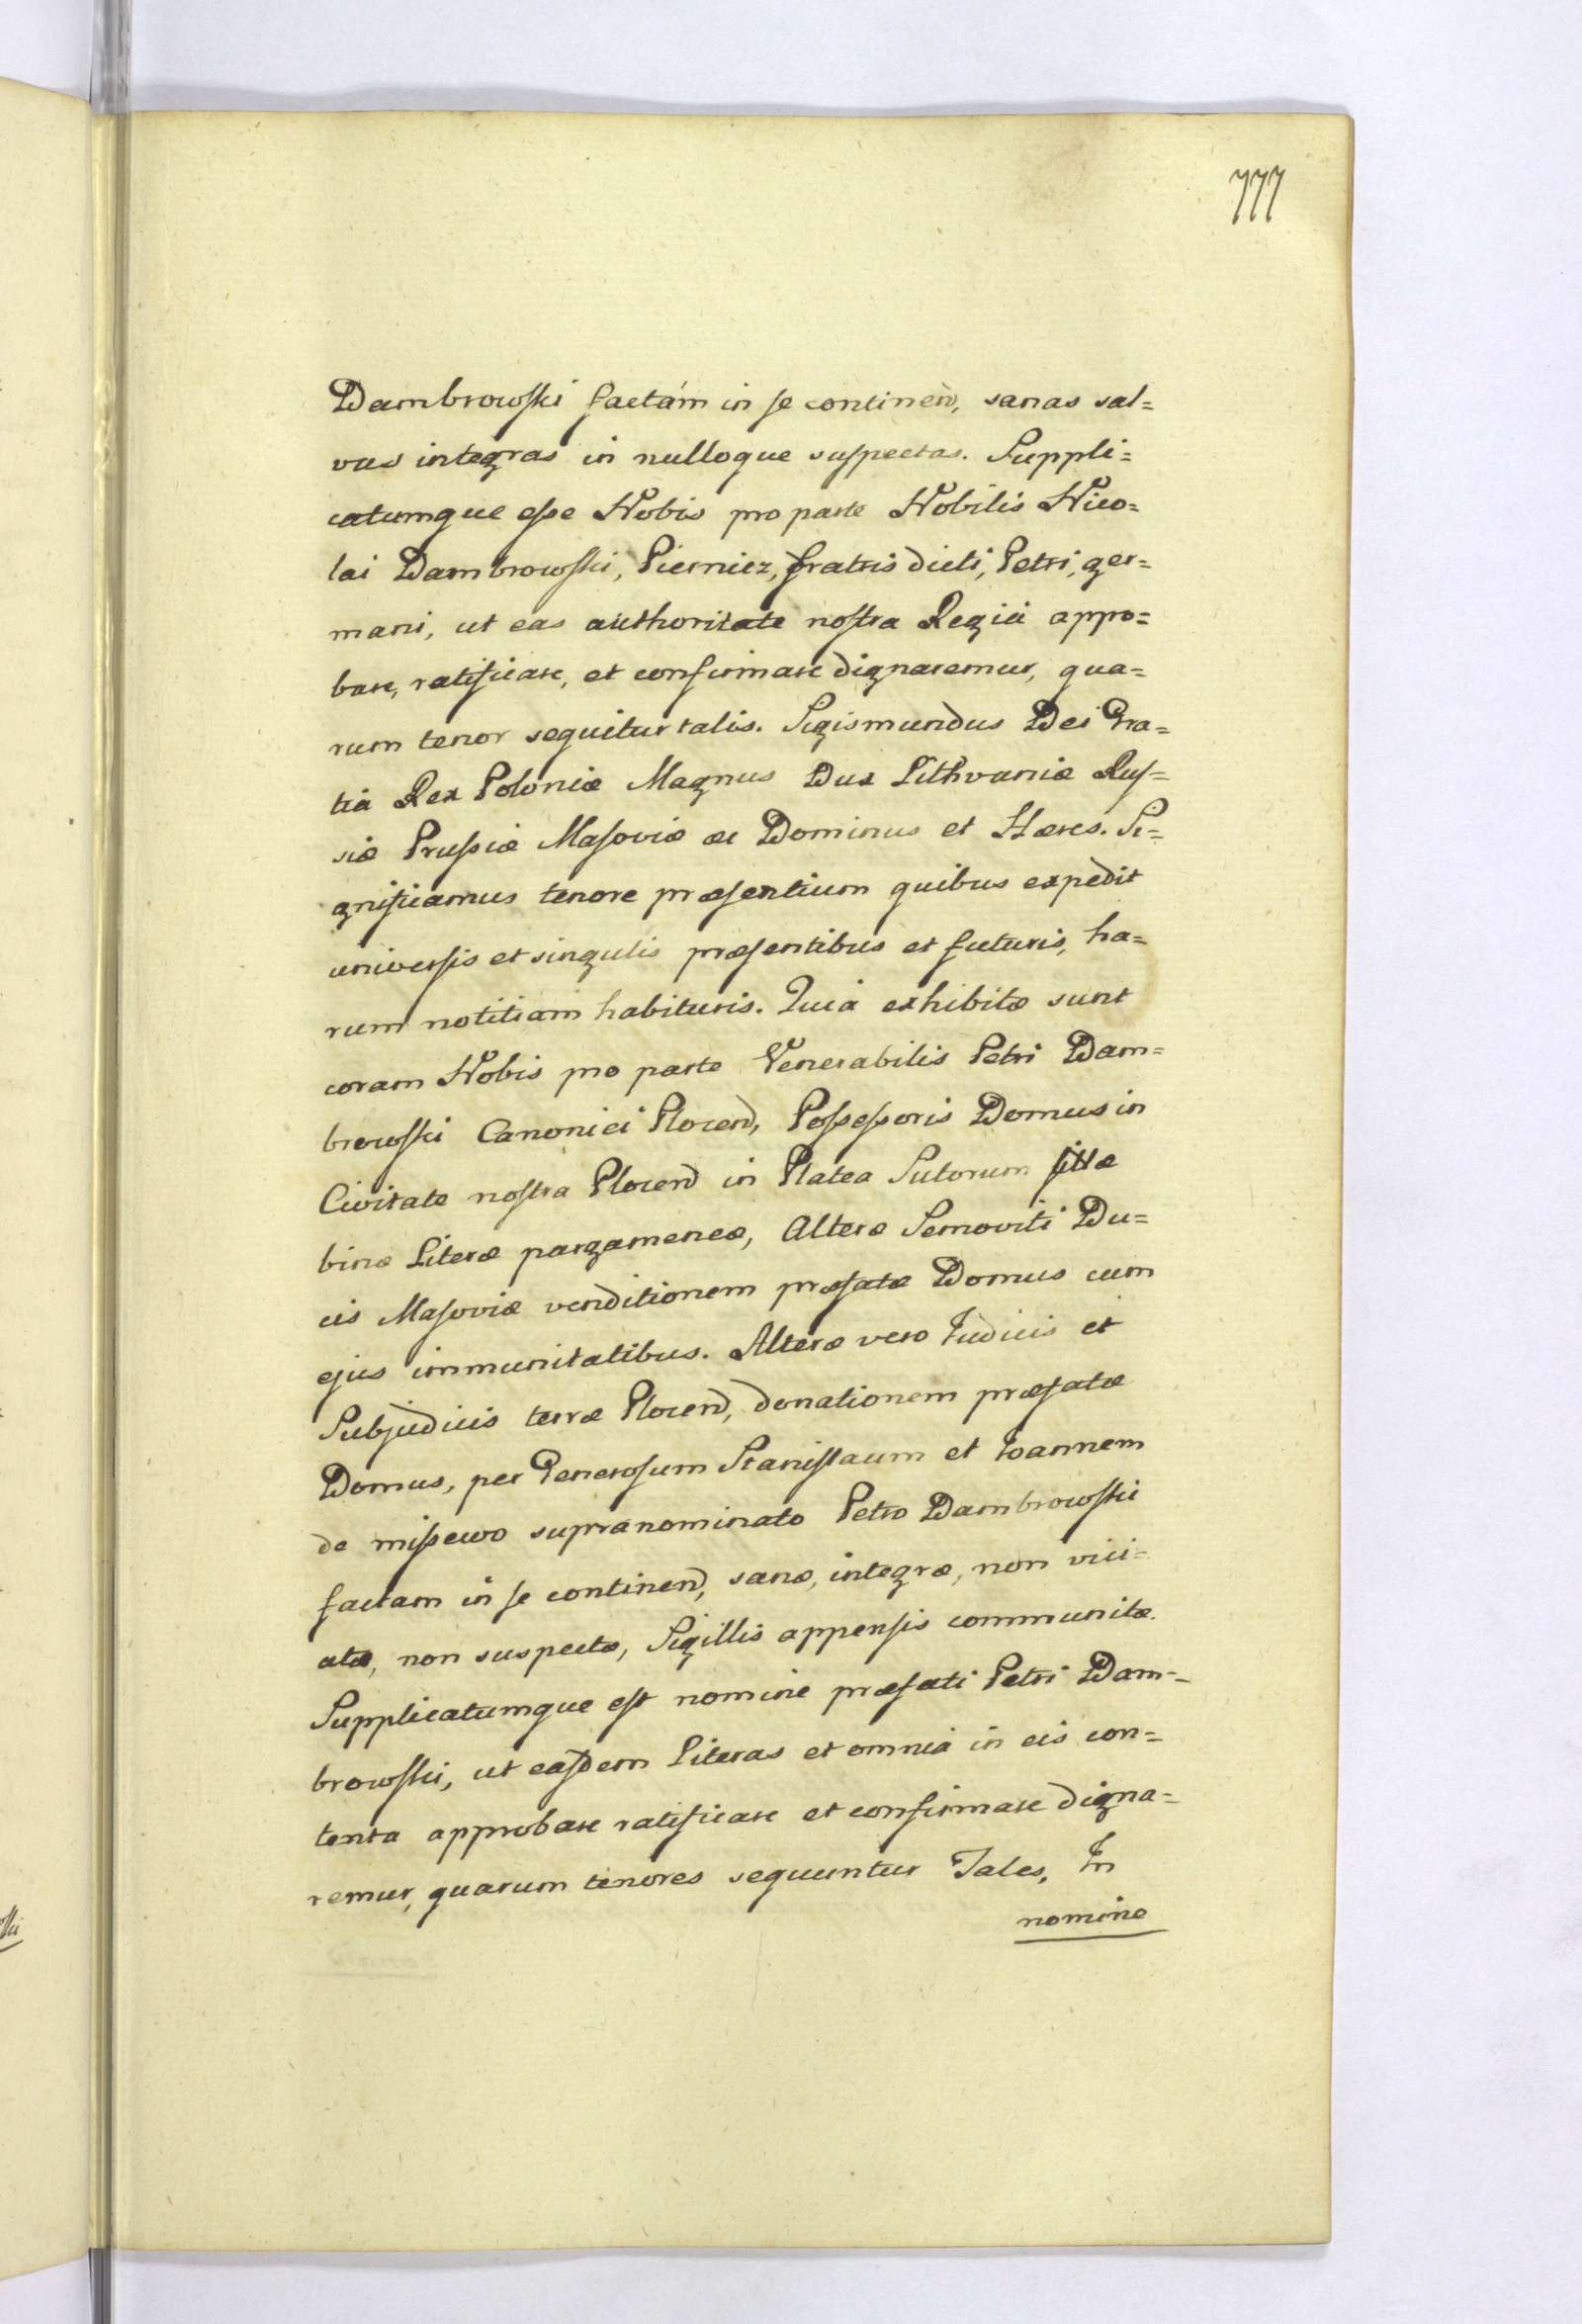 777
Dambrowski factam in se continend, sanas sal=
vas integras in nulloque suspectas. Suppli=
catumque esse Nobis pro parte Nobilis Nico=
lai Dambrowski, Pierniez, fratris dicti, Petri, ger=
mani, ut eas authoritate nostra Regia appro=
bare, ratificare, et confirmare dignaremur, qua=
rum tenor sequitur talis. Sigismundus Dei Gra=
tia Rex Poloniæ Magnus Dux Lithvaniæ Rus=
siæ Prussiæ Masoviæ ac Dominus et Hæres. Si=
gnificamus tenore præsentium quibus expedit
universis et singulis præsentibus et futuris, ha=
rum notitiam habituris. Quia exhibitæ sunt
coram Nobis pro parte Venerabilis Petri Dam=
browski Canonici Plocend, Possessoris Domus in
Civitate nostra Plocend in Platea Sutorum sitæ
binæ Literæ pargameneæ, Alteræ Semoviti Du=
cis Masoviæ venditionem præfatæ Domus cum
ejus immunitatibus. Alteræ vero Judicis et
Subjudicis terræ Plocend, donationem præfatæ
Domus, per Generosum Stanislaum et Joannem
de missewo supranominato Petro Dambrowski
factam in se continend, sanæ, integræ, non vici=
atæ, non suspectæ, Sigillis appensis communitæ.
Supplicatumque est nomine præfati Petri Dam=
browski, ut easdem Literas et omnia in eis con=
tenta approbare ratificare et confirmare digna=
remur, quarum tenores sequuntur Tales, In
nomine